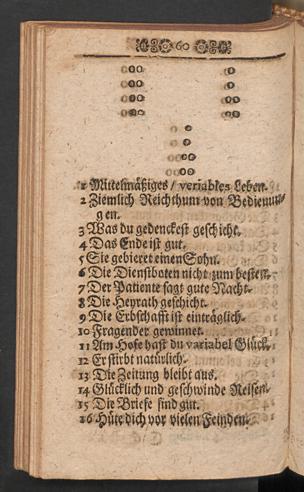 60
oo o
oo o
oo oo
oo oo
o
o
oo
oo
1 Mittelmäßiges / veriables Leben.
2 Ziemlich Reichthum von Bedienun-
gen.
3 Was du gedenckest geschicht.
4 Das Ende ist gut.
5 Sie gebieret einen Sohn.
6 Die Dienstboten nicht zum besten.
7 Der Patiente sagt gute Nacht.
8 Die Heyrath geschicht.
9 Die Erbschafft ist einträglich.
10 Fragender gewinnet.
11 Am Hofe hast du variabel Glück.
12 Er stirbt natürlich.
13 Die Zeitung bleibt aus.
14 Glücklich und geschwinde Reisen.
15 Die Briefe sind gut.
16 Hüte dich vor vielen Feinden.